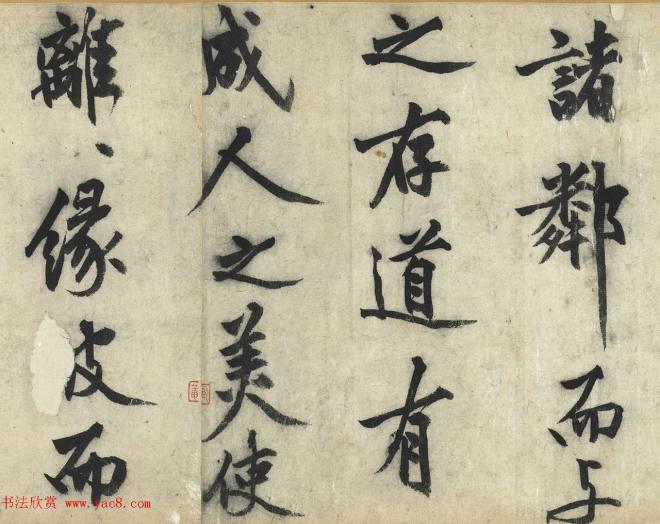 諸鄰而与
之存道有
成人之美使
離、緣皮而
书法欣赏 www.yac8.com